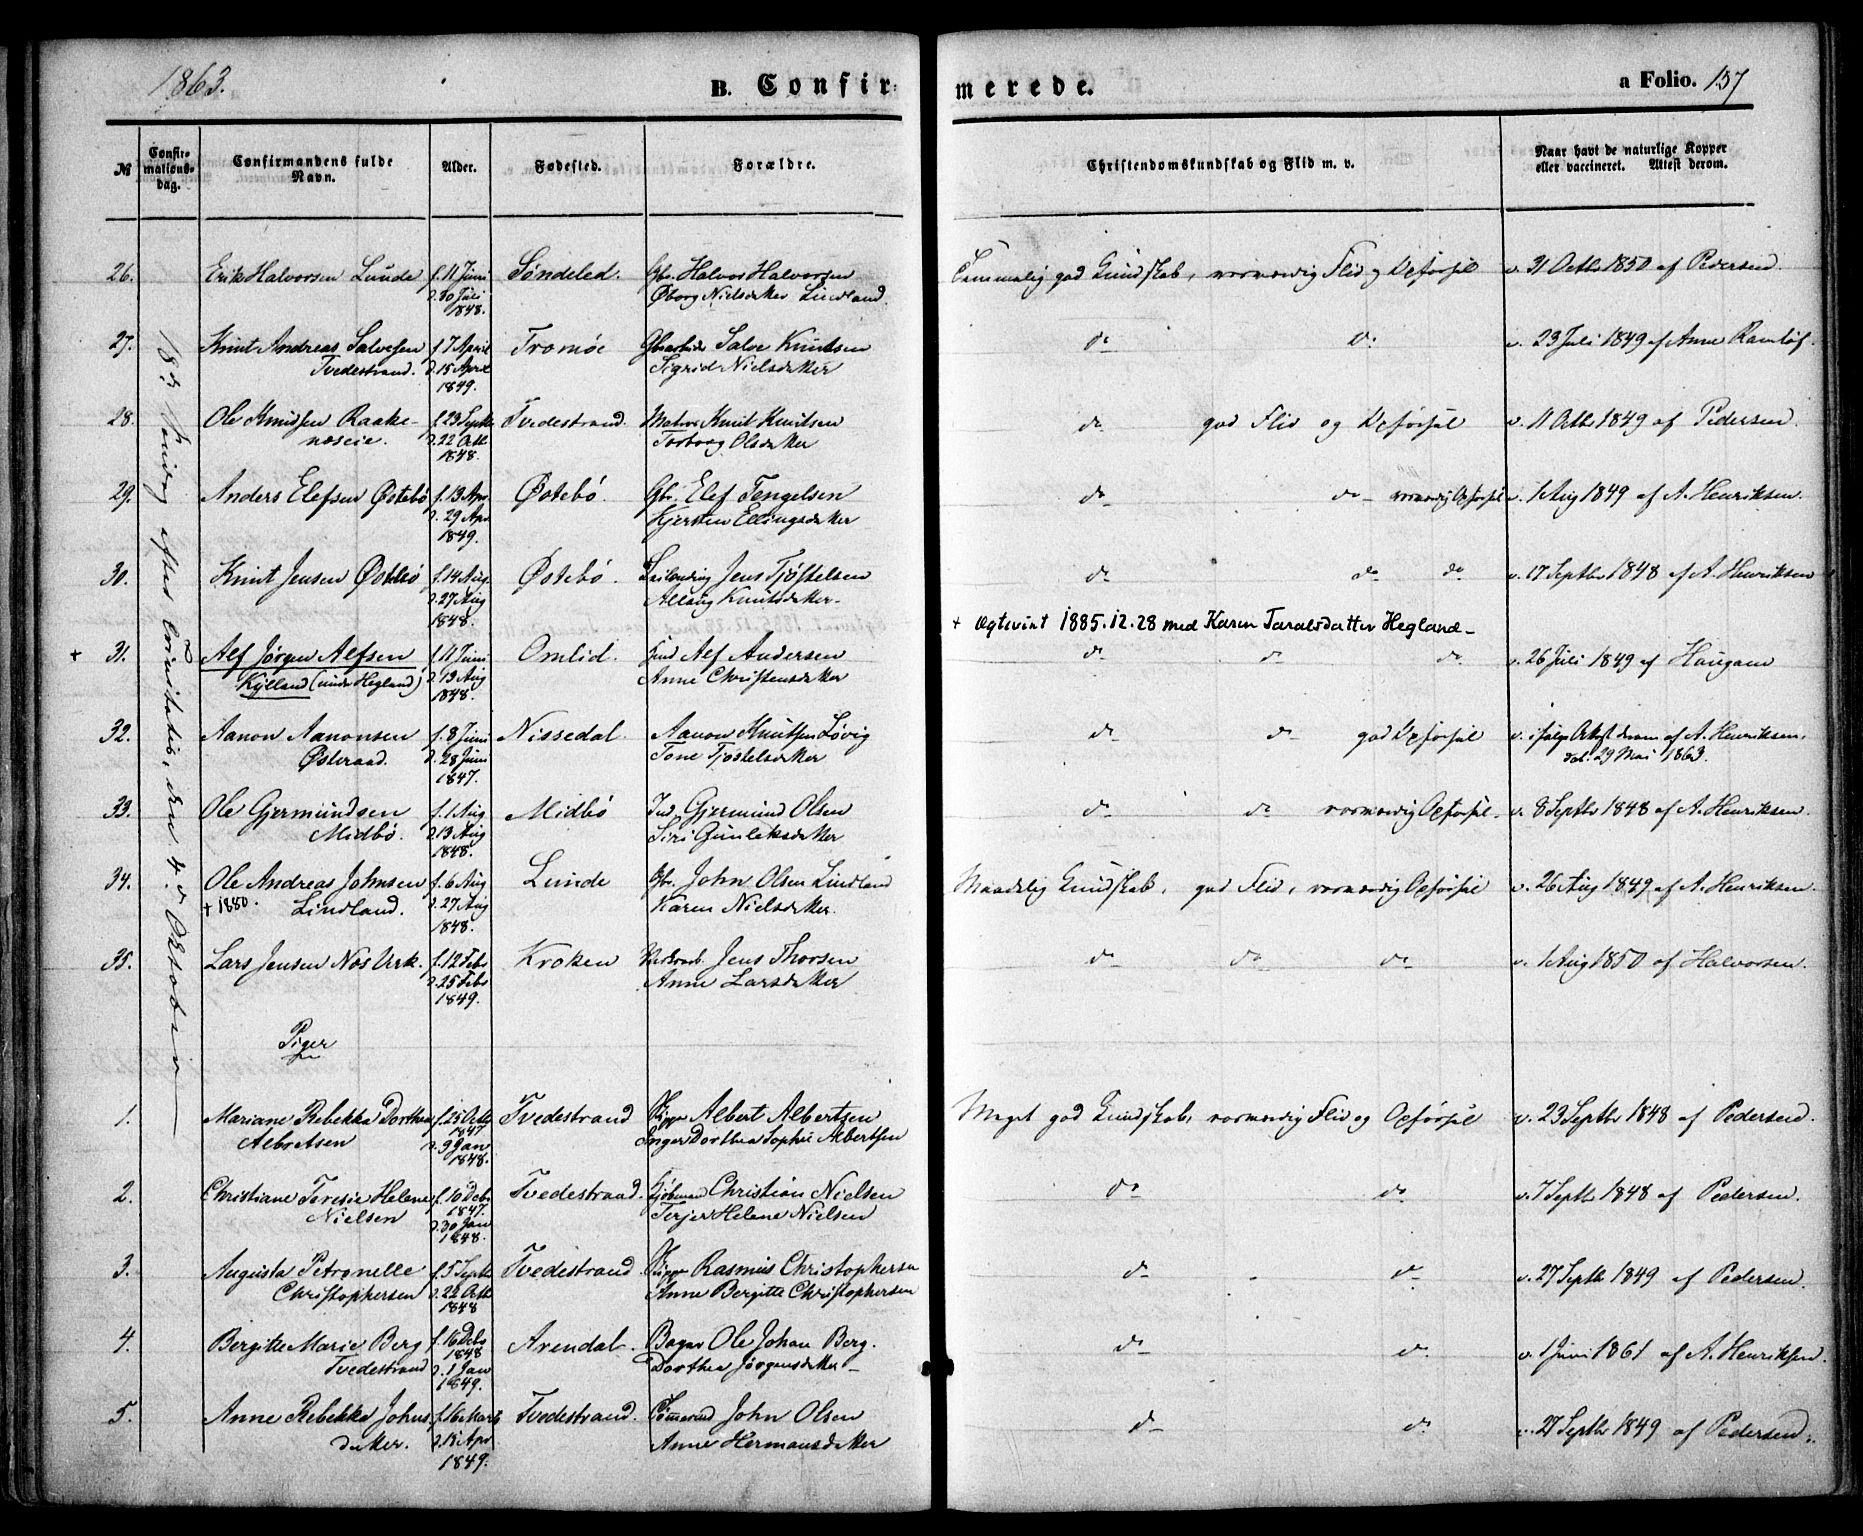 1863.
B. Confirmerede.
a Folio. 157
№
Confirmationsdag.
Confirmandens fulde Navn.
Alder.
Fødested.
Forældre.
Christendomskundskab og Flid m. v.
Naar havt de naturlige Kopper eller vaccineret. Attest derom.
18de Søndag efter Trinitatis, den 4de Oktober
26. Erik Halvorsen Lunde f. 11 Juni Søndeled. Gbr. Halvor Halvorsen Temmelig god Kundskab, roesværdig Flid og Opførsel v. 31 Octb 1850 af Pedersen.
d. 30 Juli Øborg Nielsdatter Lindland.
1848.
27. Knut Andreas Salvesen f. 7 April Tromøe Salve Knutsen do do v. 23 Juli 1849 af Anne Ramlöf.
Tvedestrand. d. 15 April Sigrid Nielsdatter
1849.
28. Ole Knudsen Raake- f. 23 Septb Tvedestrand. Matros Knut Knutsen do god Flid og Opførsel v. 11 Octb 1849 af Pedersen.
næseie. d. 22 Octb Torborg Olsdatter
1848.
29. Anders Elefsen Østebö f. 13 Apr Østebö. Gbr. Elef Tengelsen do do roesværdig Opførsel v. 1 Aug 1849 af A. Henriksen.
d. 29 Apr Kjersten Ellingsdatter
1849.
30. Knut Jensen Østebö f. 14 Aug. Østebö. Jens Tjöstelsen do do do v. 17 Septbr 1848 af A. Henriksen
d. 27 Aug Aslaug Knutsdatter
1848.
+ Ægteviet 1885.12.28 med Karen Taraldsdatter Hegland
+ 31. Alf Jörgen Alfsen f. 11 Juni Omlid. Alf Andersen do do do v. 26 Juli 1849 af Haugam
Kylland (under Hegland) d. 13 Aug Anne Christensdatter
1848.
32. Aanon Aanonsen f. 8 Juni Nissedal. Aanon Knutsen Lövig do do god Opførsel v. ifølge Attest derom af A. Henriksen,
Østeraad. d. 28 Juni Tone Tjöstelsdatter dat. 29 Mai 1863.
1847.
33. Ole Gjermundsen f. 1 Aug Midbö Ind. Gjermund Olsen do do roesværdig Opførsel v. 8 Septbr 1848 af A. Henriksen.
Midbö. d. 13 Aug Siri Gunleksdatter
1848.
34. Ole Andreas Johnsen f. 6 Aug Lunde Gbr. John Olsen Lindland Maadelig Kundskab, god Flid, roesværdig Opførsel v. 26 Aug 1849 af A. Henriksen.
+ 1880. Lindland. d. 27 Aug Karen Nielsdatter.
1848.
35. Lars Jensen Næs Verk. f. 12 Feb Kroken Verksarb. Jens Thorsen do do do v. 1 Aug 1850 af Halvorsen.
d. 25 Feb Anne Larsdatter
1849.
Piger
1. Mariane Rebekka Dorthea f. 25 Octb Tvedestrand Skipper Albert Albertsen Meget god Kundskab, roesværdig Flid og Opførsel v. 23 Septbr 1848 af Pedersen.
Albretsen 1847 Inger Dorthea Sophie Albertsen
d. 9 Jan
1848.
2. Christiane Teresie Helene f. 10 Decb Tvedestrand. Kjöbmand Christian Nielsen do do v. 7 Septbr 1848 af Pedersen.
Nielsen 1847. Terjer Helene Nielsen
d. 30 Jan
1848.
3. Augusta Petronelle f. 5 Septb Tvedestrand. Skipper Rasmus Christophersen do do v. 27 Septbr 1849 af Pedersen.
Christophersen d. 22 Octb Anne Bergitte Christophersen
1848
4. Bergitte Marie Berg f. 16 Decb Arendal. Bager Ole Johan Berg. do do v. 1 Juni 1861 af A. Henriksen.
Tvedestrand 1848 Dorthea Jörgensdatter
d. 1 Jan
1849.
5. Anne Rebekka Johns- f. 16 Marts Tvedestrand. Tömmermd John Olsen do do v. 27 Septbr 1849 af Pedersen.
datter. d. 15 Apr Anne Hermansdatter
1849.